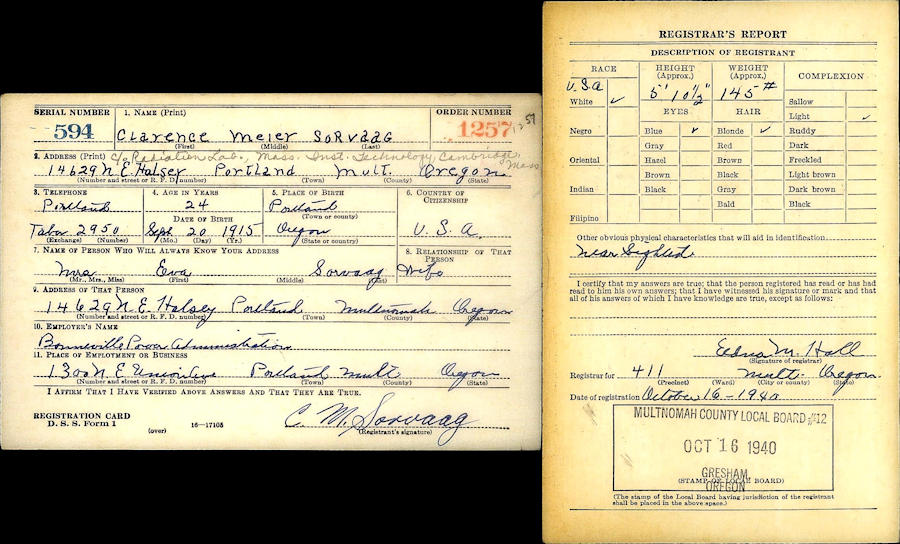 SERIAL NUMBER
594
1. NAME (Print)
Clarence Meier SORVAAG
(First) (Middle) (Last)
ORDER NUMBER
1257
1257
2. ADDRESS (Print) c/o Radiation Lab., Mass. Inst. Technology, Cambridge, Mass
14629 N.E. Halsey Portland Mult. Oregon
(Number and street or R. F. D. number) (Town) (County) (State)
3. TELEPHONE
Portland
Tabor 2950
(Exchange) (Number)
4. AGE IN YEARS
24
DATE OF BIRTH
Sept. 20 1915
(Mo.) (Day) (Yr.)
5. PLACE OF BIRTH
Portland
(Town or county)
Oregon
(State or country)
6. COUNTRY OF CITIZENSHIP
U. S. A.
7. NAME OF PERSON WHO WILL ALWAYS KNOW YOUR ADDRESS
Mrs Eva Sorvaag
(Mr., Mrs., Miss) (First) (Middle) (Last)
8. RELATIONSHIP OF THAT PERSON
Wife
9. ADDRESS OF THAT PERSON
14629 N.E. Halsey Portland Multnomah Oregon
(Number and street or R. F. D. number) (Town) (County) (State)
10. EMPLOYER'S NAME
Bonneville Power Administration
11. PLACE OF EMPLOYMENT OR BUSINESS
1300 N.E. Union Ave Portland Mult Oregon
(Number and street or R. F. D. number) (Town) (County) (State)
I AFFIRM THAT I HAVE VERIFIED ABOVE ANSWERS AND THAT THEY ARE TRUE.
REGISTRATION CARD
D. S. S. Form 1
(over)
16—17105
C. M. Sorvaag
(Registrant's signature)
REGISTRAR'S REPORT
DESCRIPTION OF REGISTRANT
RACE
U.S.A
White ✓
Negro
Oriental
Indian
Filipino
HEIGHT
(Approx.)
5' 10½"
WEIGHT
(Approx.)
145#
EYES
Blue ✓
Gray
Hazel
Brown
Black
HAIR
Blonde ✓
Red
Brown
Black
Gray
Bald
COMPLEXION
Sallow
Light ✓
Ruddy
Dark
Freckled
Light brown
Dark brown
Black
Other obvious physical characteristics that will aid in identification
near sighted
I certify that my answers are true; that the person registered has read or has had
read to him his own answers; that I have witnessed his signature or mark and that
all of his answers of which I have knowledge are true, except as follows:
Edna M. Hall
(Signature of registrar)
Registrar for 411 Mult. Oregon.
(Precinct) (Ward) (City or county) (State)
Date of registration October 16 - 1940
MULTNOMAH COUNTY LOCAL BOARD #12
OCT 16 1940
GRESHAM,
OREGON
(STAMP OF LOCAL BOARD)
(The stamp of the Local Board having jurisdiction of the registrant
shall be placed in the above space.)